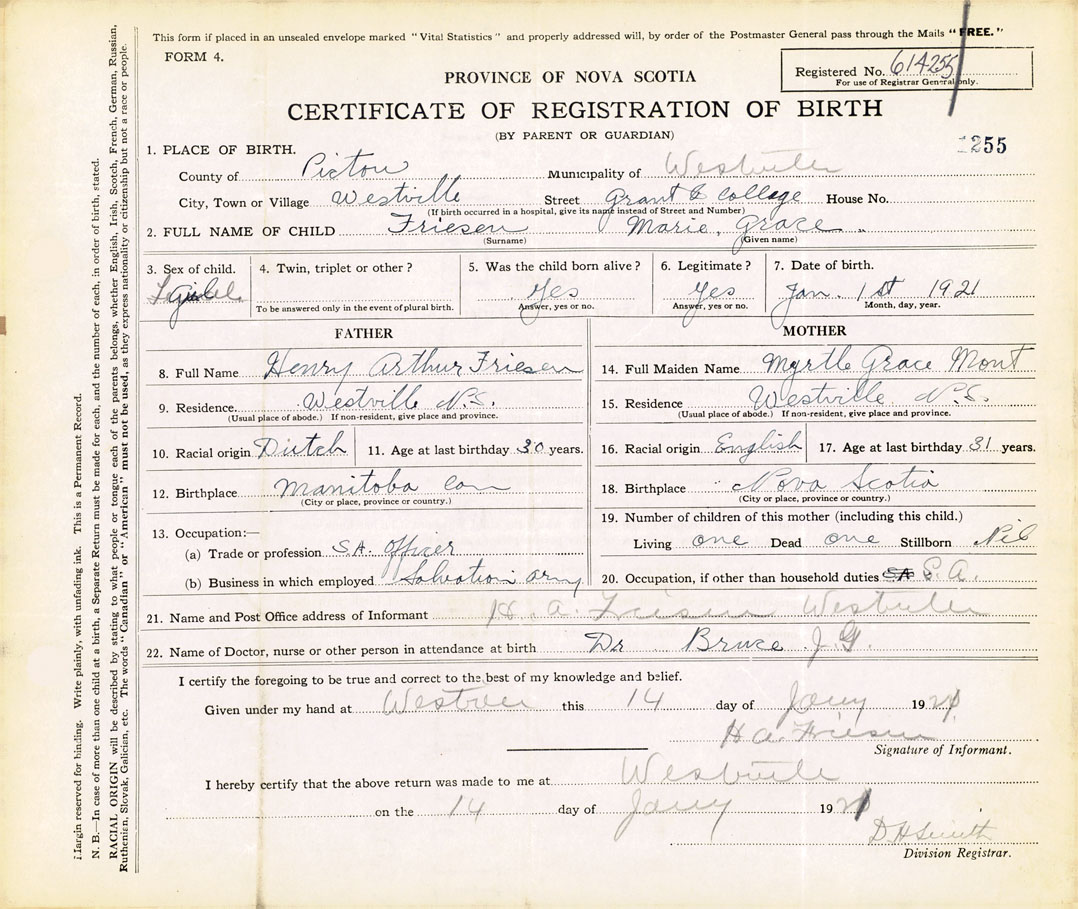 This form if placed in an unsealed envelope marked "Vital Statistics" and properly addressed will, by order of the Postmaster General pass through the Mails "FREE."
FORM 4.
Registered No. 614255
For use of Registrar General only.
PROVINCE OF NOVA SCOTIA
CERTIFICATE OF REGISTRATION OF BIRTH
(BY PARENT OR GUARDIAN)
1255
1. PLACE OF BIRTH.
County of Pictou Municipality of Westville
City, Town or Village Westville Street Grant & College House No.
(If birth occurred in a hospital, give its name instead of Street and Number)
2. FULL NAME OF CHILD Friesen Marie, Grace
(Surname) (Given name)
3. Sex of child. 4. Twin, triplet or other? 5. Was the child born alive? 6. Legitimate? 7. Date of birth.
Yes Yes Jan. 1st 1921
To be answered only in the event of plural birth. Answer, yes or no. Answer, yes or no. Month, day, year.
FATHER MOTHER
8. Full Name Henry Arthur Friesen 14. Full Maiden Name Myrtle Grace Mont
9. Residence Westville N.S. 15. Residence Westville N.S.
(Usual place of abode.) If non-resident, give place and province. (Usual place of abode.) If non-resident, give place and province.
10. Racial origin Dutch 11. Age at last birthday 30 years. 16. Racial origin English 17. Age at last birthday 31 years.
12. Birthplace Manitoba Can 18. Birthplace Nova Scotia
(City or place, province or country.) (City or place, province or country.)
13. Occupation:— 19. Number of children of this mother (including this child.)
(a) Trade or profession S.A. Officer Living one Dead one Stillborn Nil
(b) Business in which employed Salvation Army 20. Occupation, if other than household duties SA S.A.
21. Name and Post Office address of Informant H. A. Friesen Westville
22. Name of Doctor, nurse or other person in attendance at birth Dr Bruce J.G.
I certify the foregoing to be true and correct to the best of my knowledge and belief.
Given under my hand at Westville this 14 day of Jany 1921
H A Friesen
Signature of Informant.
I hereby certify that the above return was made to me at Westville
on the 14 day of Jany 1921
D H Smith
Division Registrar.
Margin reserved for binding. Write plainly, with unfading ink. This is a Permanent Record.
N. B.—In case of more than one child at a birth, a Separate Return must be made for each, and the number of each, in order of birth, stated.
RACIAL ORIGIN will be described by stating to what people or tongue each of the parents belongs, whether English, Irish, Scotch, French, German, Russian,
Ruthenian, Slovak, Galician, etc. The words "Canadian" or "American" must not be used, as they express nationality or citizenship but not a race or people.